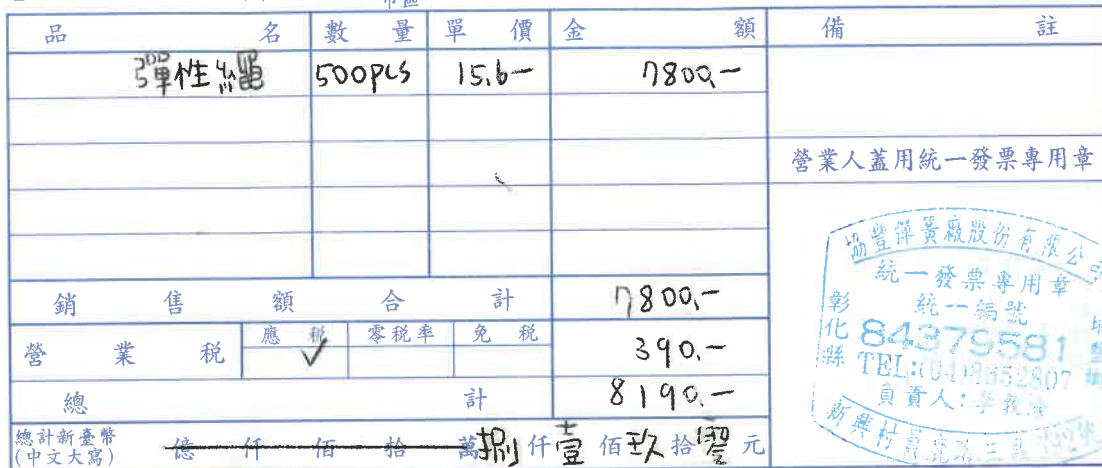 品名 數量 單價 金額 備註
彈性繩 500pcs 15.6- 7800.-
營業人蓋用統一發票專用章
銷售額合計 7800.-
營業稅 應稅 ✓ 零稅率 免稅 390.-
總計 8190.-
總計新臺幣
(中文大寫) 億 仟 佰 拾 萬 捌 仟 壹 佰 玖 拾 零 元
協豐彈簧廠股份有限公司
統一發票專用章
統一編號
彰化縣
84379581
TEL:(04)8652807
負責人:
新興村